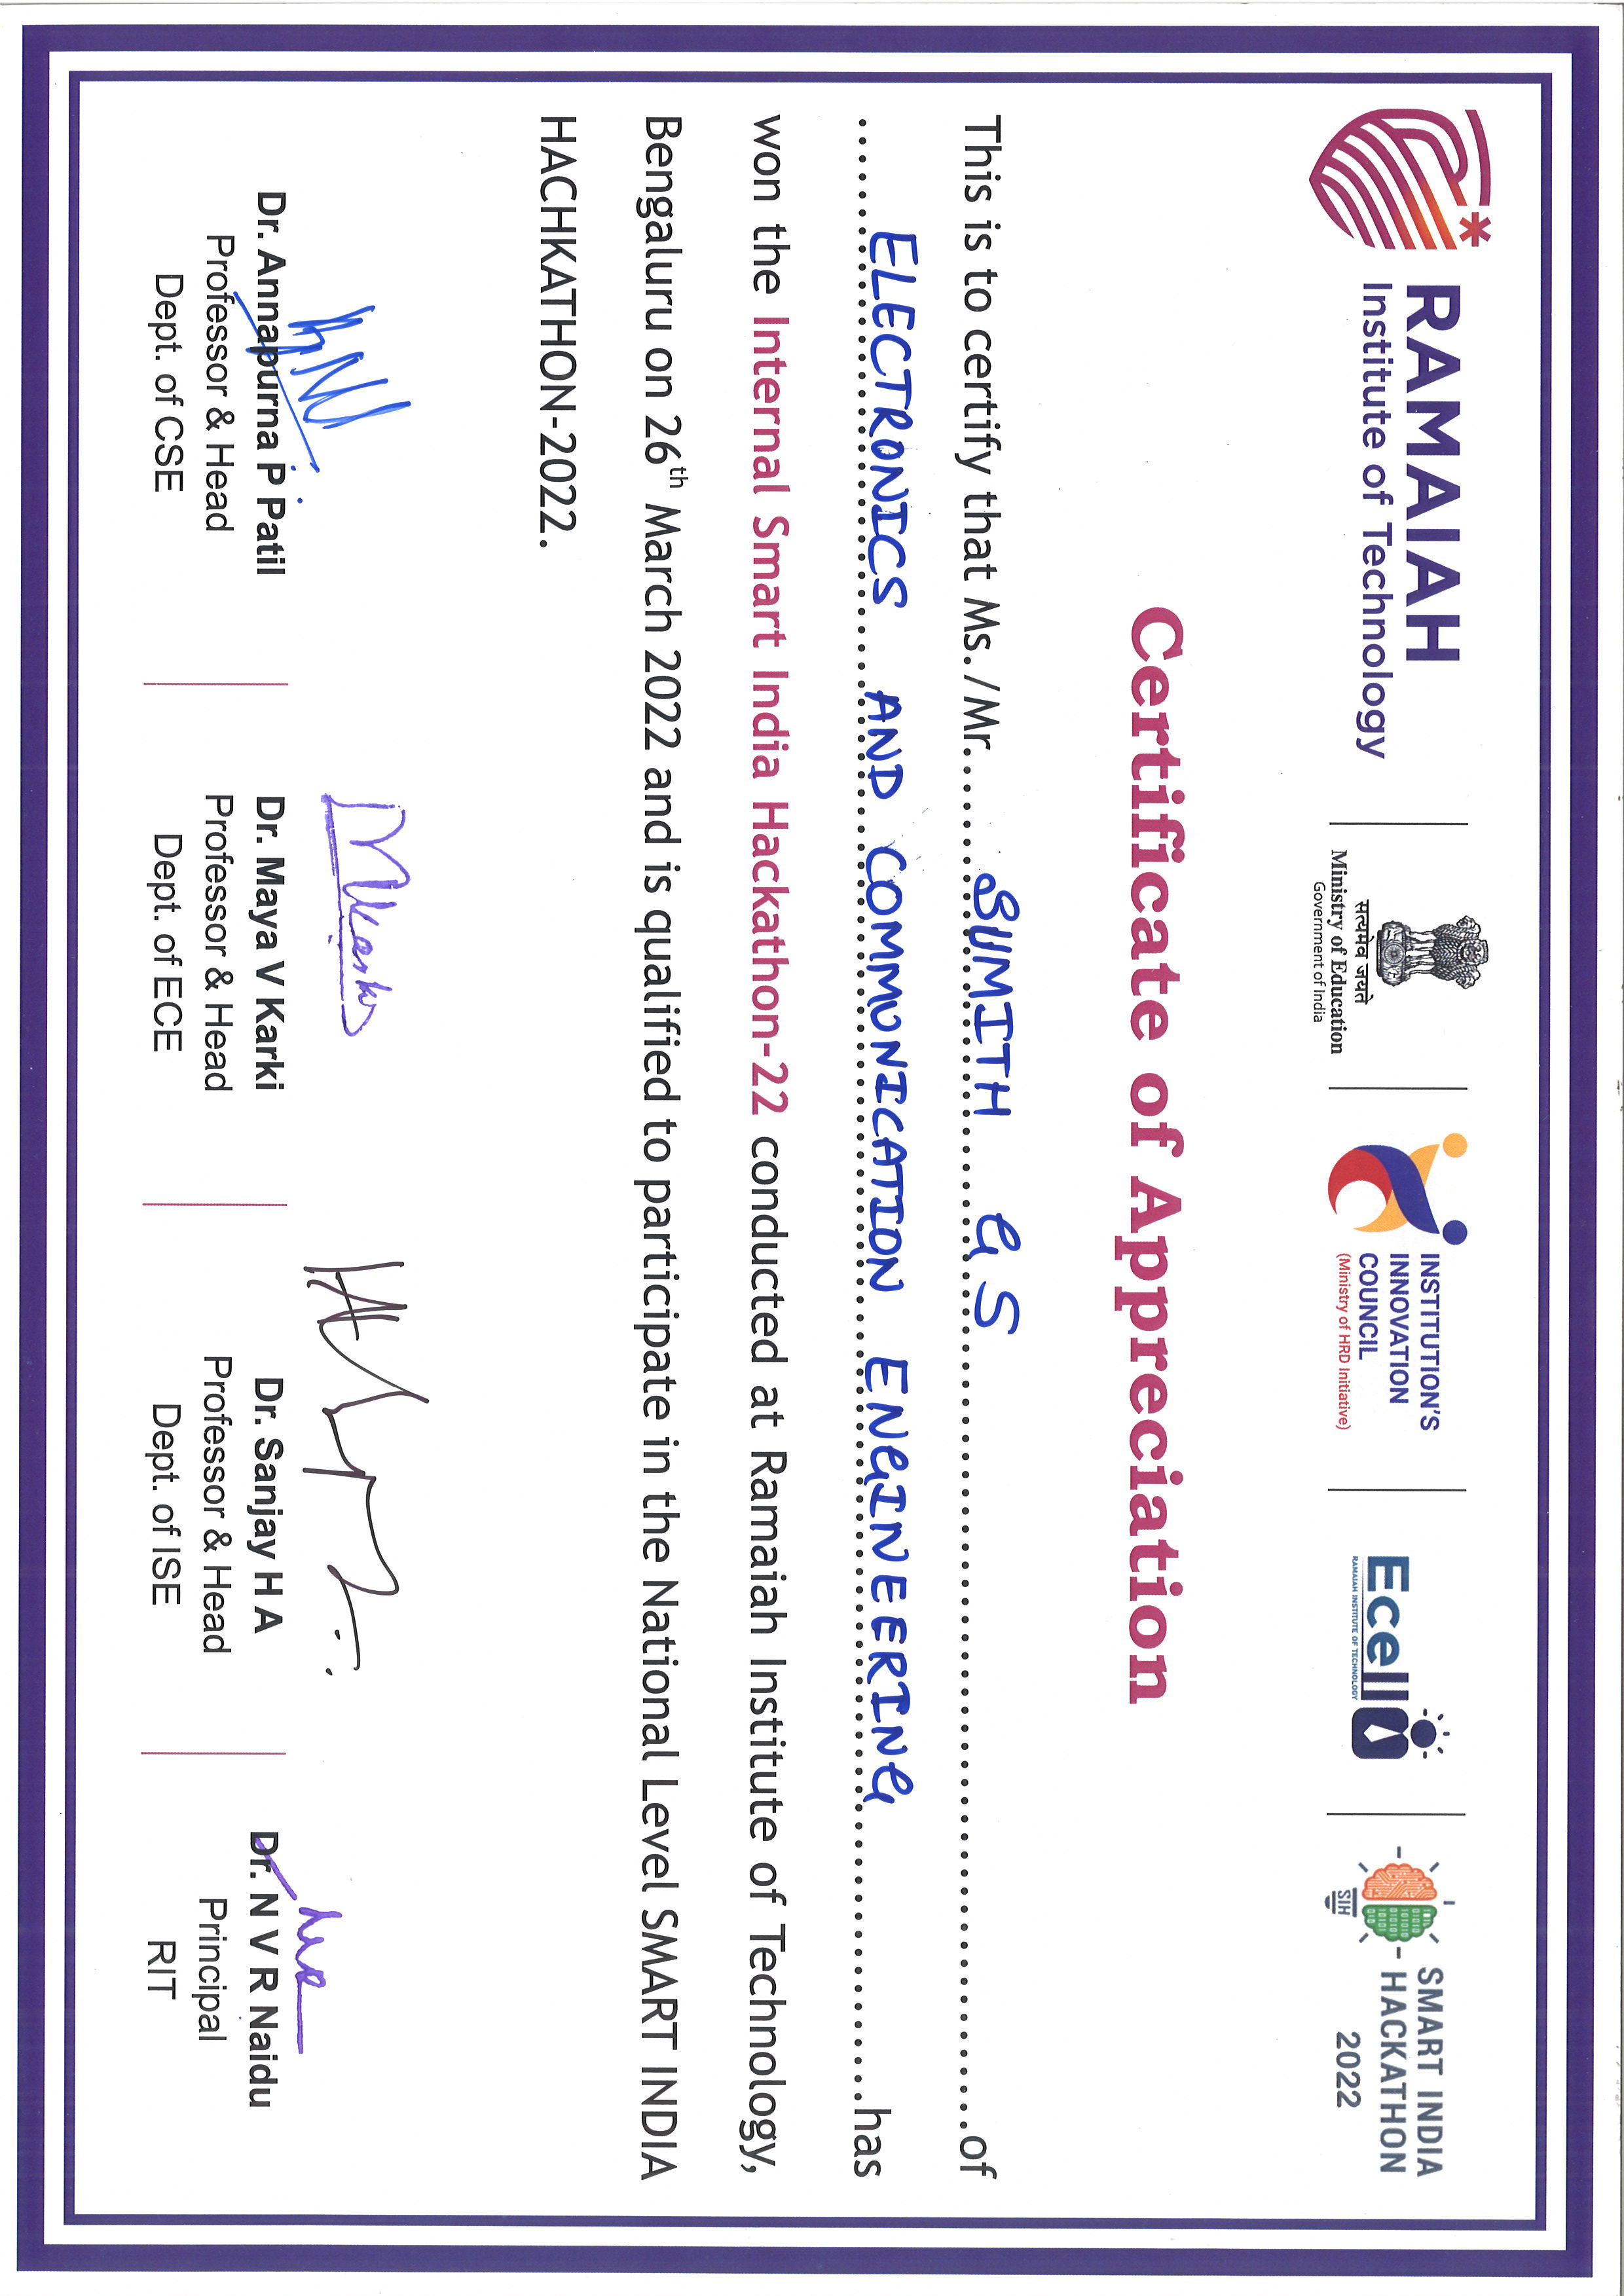 RAMAIAH
Institute of Technology
सत्यमेव जयते
Ministry of Education
Government of India
INSTITUTION'S
INNOVATION
COUNCIL
(Ministry of HRD Initiative)
Ecell
RAMAIAH INSTITUTE OF TECHNOLOGY
SIH
SMART INDIA
HACKATHON
2022
Certificate of Appreciation
This is to certify that Ms./Mr. SUMITH G S of
ELECTRONICS AND COMMUNICATION ENGINEERING has
won the Internal Smart India Hackathon-22 conducted at Ramaiah Institute of Technology,
Bengaluru on 26th March 2022 and is qualified to participate in the National Level SMART INDIA
HACHKATHON-2022.
Dr. Annapurna P Patil
Professor & Head
Dept. of CSE
Dr. Maya V Karki
Professor & Head
Dept. of ECE
Dr. Sanjay H A
Professor & Head
Dept. of ISE
Dr. N V R Naidu
Principal
RIT